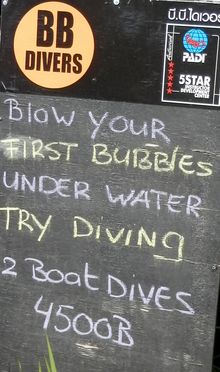 BB
DIVERS
บี.บี.ไดเวอร์
PADI
5STAR
INSTRUCTOR
DEVELOPMENT
CENTER
BLOW YOUR
FIRST BUBBLES
UNDER WATER
TRY DIVING
2 BOAT DIVES
4500B